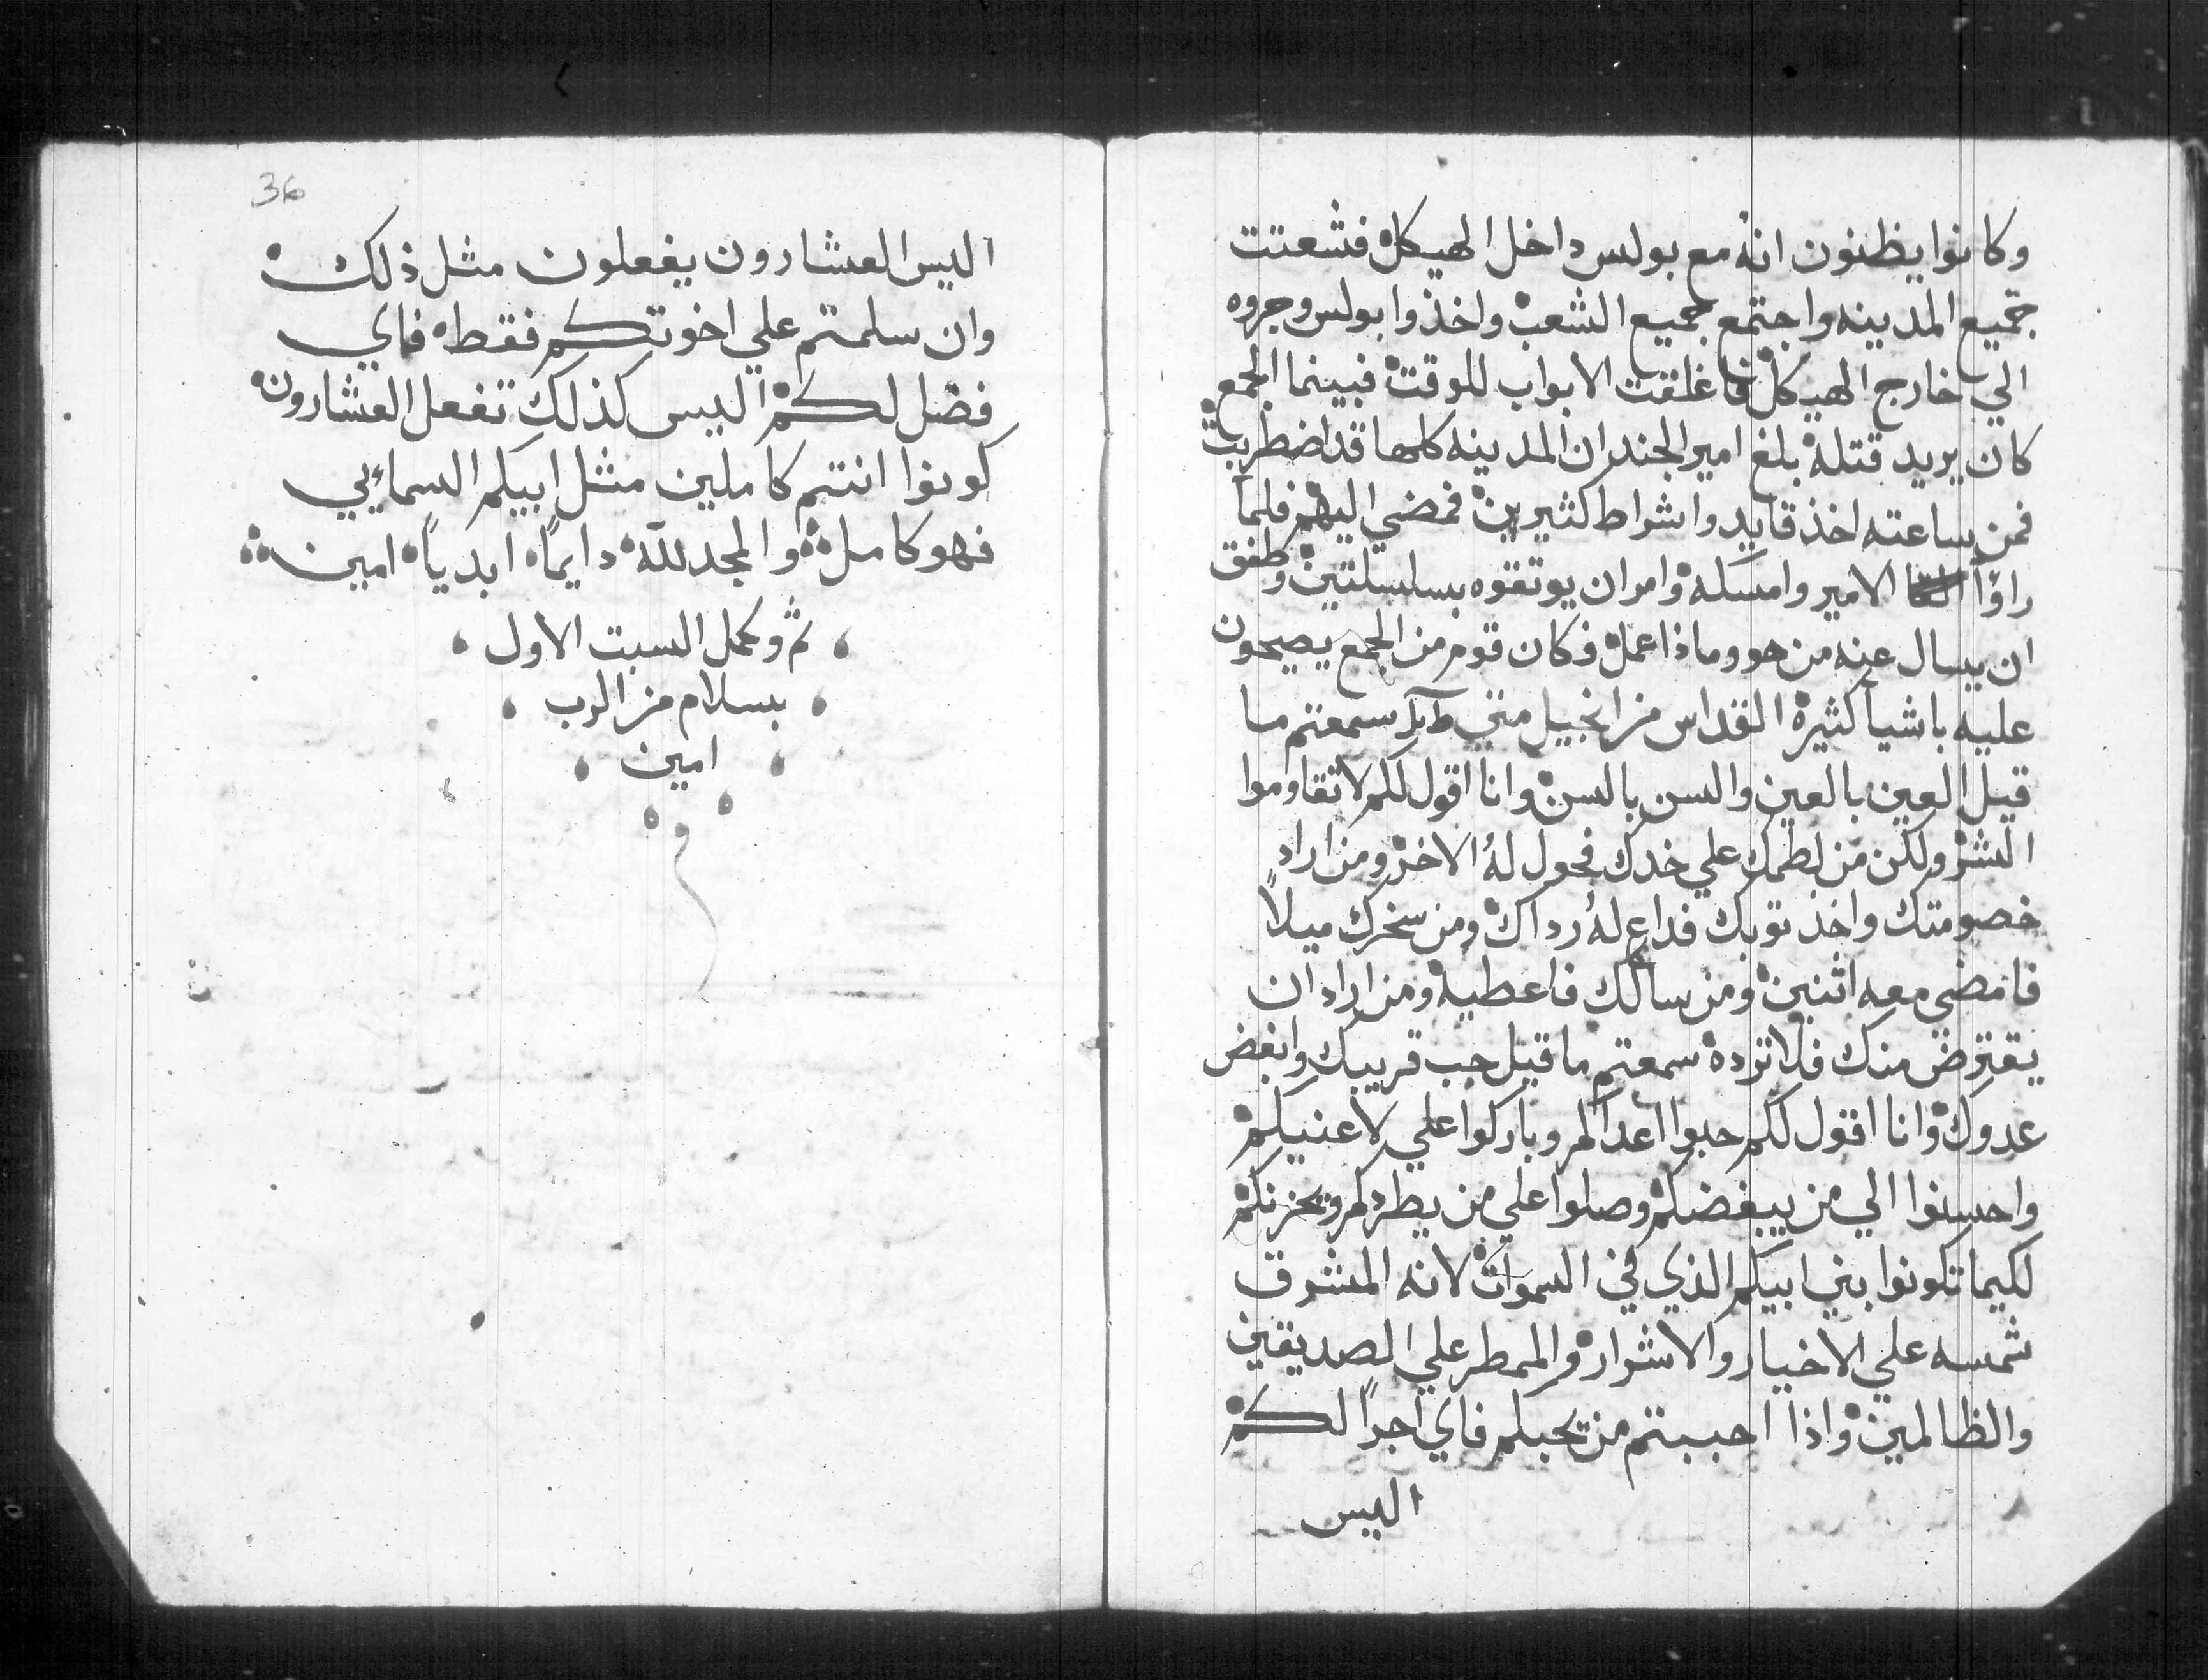 وكانوا يظنون انه مع بولس داخل الهيكل فشعتت
جميع المدينه واجتمع جميع الشعب واخذوا بولس وجروه
الي خارج الهيكل فاغلقت الابواب للوقت فبينما الجمع
كان يريد قتله بلغ امير الجند ان المدينه كلها قد اضطربت
فمن ساعته اخذ قايد واشراط كثيرين فمضي اليهم فلما
راؤا الامير وامسكه وامر ان يوتقوه بسلسلتين وطفق
ان يسال عنه من هو وماذا عمل وكان قوم من الجمع يصيحون
عليه باشيا كثيره القداس من انجيل متي سمعتم ما
قيل العين بالعين والسن بالسن وانا اقول لكم لا تقاوموا
الشر ولكن من لطمك علي خدك فحول له الاخر ومن اراد
خصومتك واخذ توبك فداع له رداك ومن سخرك ميلاً
فامضي معه اتنين ومن سالك فاعطيه ومن اراد ان
يقترض منك فلا ترده سمعتم ما قيل حب قريبك وابغض
عدوك وانا اقول لكم حبوا اعداكم وباركوا علي لاعنيكم
واحسنوا الي من يبغضكم وصلوا علي من يطردكم ويحزنكم
لكيما تكونوا بني ابيكم الذي في السموات لانه المشرق
شمسه علي الاخيار والاشرار والممطر علي الصديقين
والظالمين واذا احببتم من يحبكم فاي اجراً لكم
اليس
36
اليس العشارون يفعلون مثل ذلك
وان سلمتم علي اخوتكم فقط فاي
فضل لكم اليس كذلك تفعل العشارون
كونوا انتم كاملين مثل ابيكم السمايي
فهو كامل والمجد لله دايماً ابدياً امين
تم وكمل السبت الاول
بسلام من الرب
امين